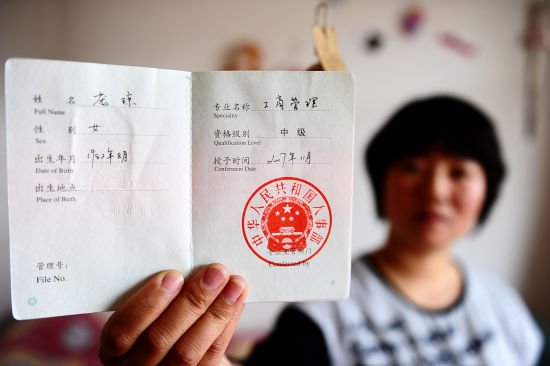 姓 名
Full Name
性 别 女
Sex
出生年月
Date of Birth
出生地点
Place of Birth
管理号:
File No.
专业名称 工商管理
Speciality
资格级别 中 级
Qualification Level
授予时间 2007年11月
Conferment Date
中华人民共和国人事部
Conferred by